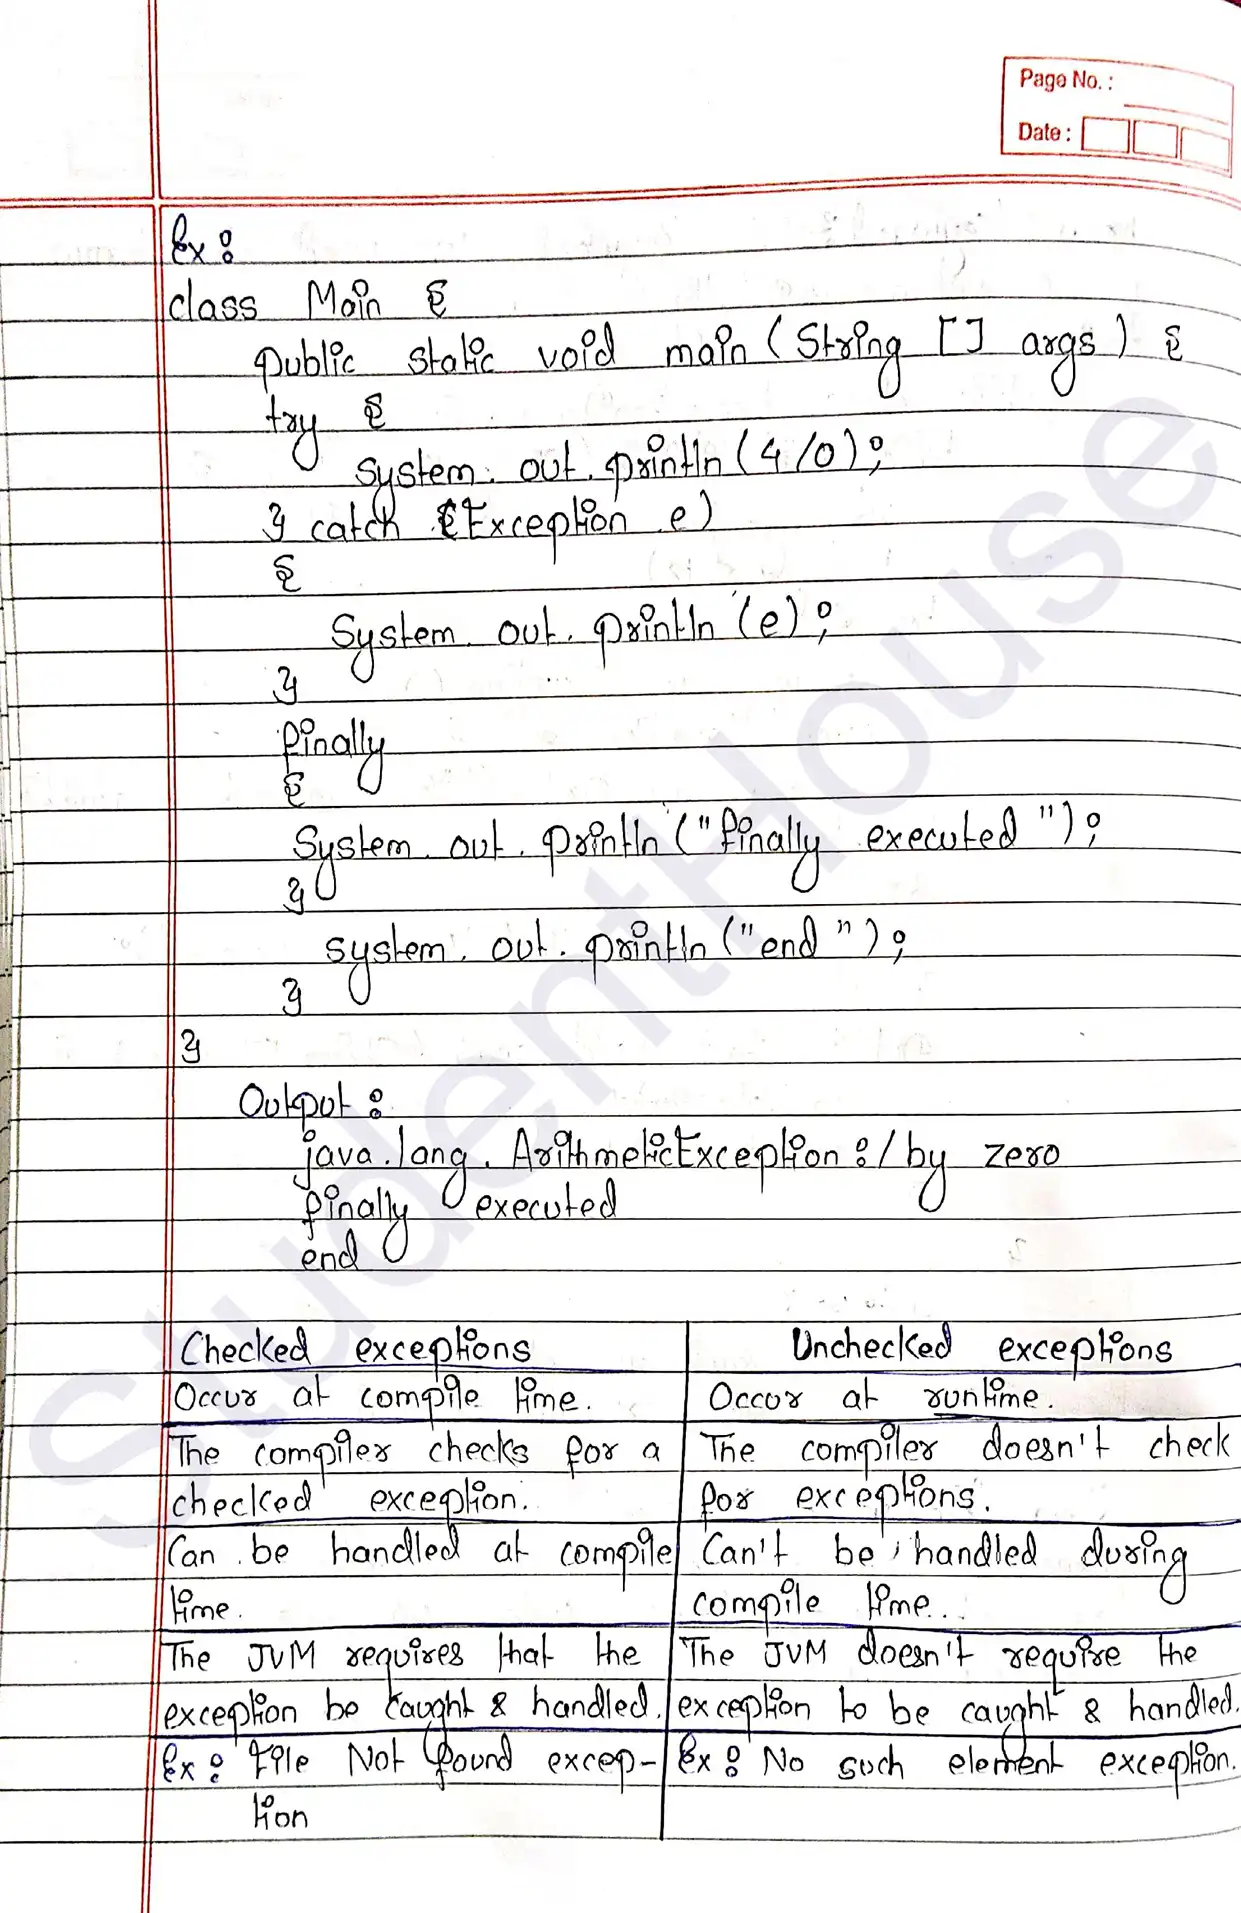 Page No. :
Date :
Ex :
class Main {
public static void main (String [] args) {
try {
System. out. println (4/0);
} catch (Exception e)
{
System. out. println (e);
}
finally
{
System. out. println ("finally executed");
}
system. out. println ("end");
}
}
Output :
java.lang. ArithmeticException : / by zero
finally executed
end
Checked exceptions | Unchecked exceptions
Occur at compile time. | Occur at runtime.
The compiler checks for a | The compiler doesn't check
checked exception. | for exceptions.
Can be handled at compile | Can't be handled during
time. | compile time..
The JVM requires that the | The JVM doesn't require the
exception be caught & handled. | exception to be caught & handled.
Ex : File Not found excep- | Ex : No such element exception.
tion
StudentHouse